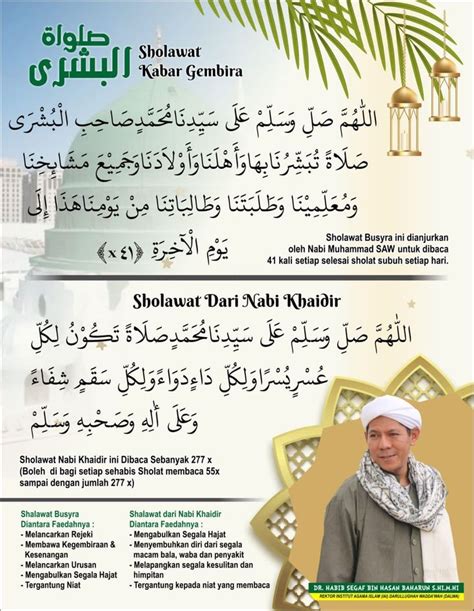 صلواة
البشرى
Sholawat
Kabar Gembira
اَللّٰهُمَّ صَلِّ وَسَلِّمْ عَلَى سَيِّدِنَا مُحَمَّدٍ صَاحِبِ الْبُشْرَى
صَلَاةً تُبَشِّرُنَا بِهَا وَأَهْلَنَا وَأَوْلَادَنَا وَجَمِيْعَ مَشَايِخِنَا
وَمُعَلِّمِيْنَا وَطَلَبَتَنَا وَطَالِبَاتِنَا مِنْ يَوْمِنَا هَذَا إِلَى
يَوْمِ الْآخِرَةِ ﴿٤١ x﴾
Sholawat Busyra ini dianjurkan
oleh Nabi Muhammad SAW untuk dibaca
41 kali setiap selesai sholat subuh setiap hari.
Sholawat Dari Nabi Khaidir
اَللّٰهُمَّ صَلِّ وَسَلِّمْ عَلَى سَيِّدِنَا مُحَمَّدٍ صَلَاةً تَكُوْنُ لِكُلِّ
عُسْرٍ يُسْرًا وَلِكُلِّ دَاءٍ دَوَاءً وَلِكُلِّ سَقَمٍ شِفَاءً
وَعَلَى أٰلِهِ وَصَحْبِهِ وَسَلِّمْ
Sholawat Nabi Khaidir ini Dibaca Sebanyak 277 x
(Boleh di bagi setiap sehabis Sholat membaca 55x
sampai dengan jumlah 277 x)
Sholawat Busyra
Diantara Faedahnya :
- Melancarkan Rejeki
- Membawa Kegembiraan &
Kesenangan
- Melancarkan Urusan
- Mengabulkan Segala Hajat
- Tergantung Niat
Sholawat dari Nabi Khaidir
Diantara Faedahnya :
- Mengabulkan Segala Hajat
- Menyembuhkan diri dari segala
macam bala, waba dan penyakit
- Melapangkan segala kesulitan dan
himpitan
- Tergantung kepada niat yang membaca
DR. HABIB SEGAF BIN HASAN BAHARUN S.HI.M.HI
REKTOR INSTITUT AGAMA ISLAM (IAI) DARULLUGHAH WADDA'WAH (DALWA)